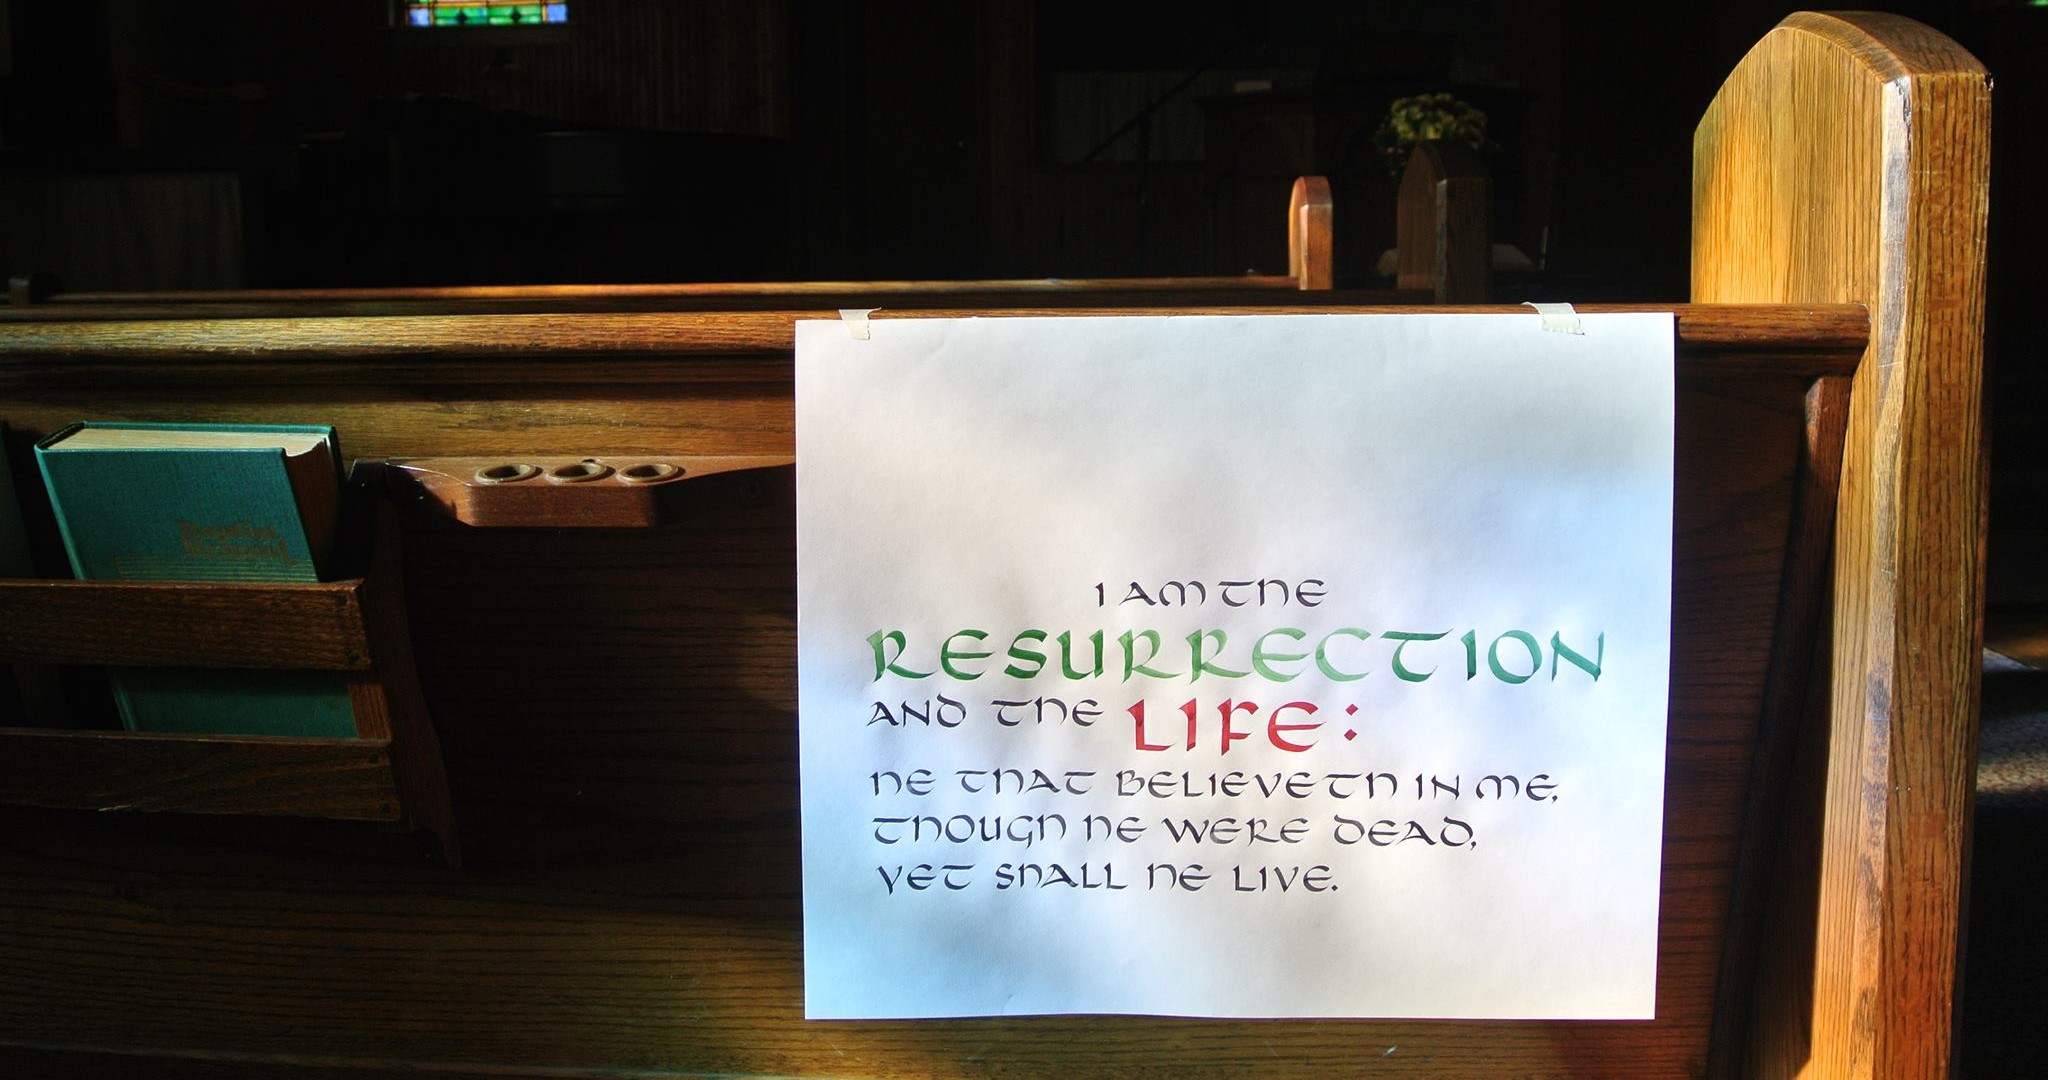 I AM THE
RESURRECTION
AND THE LIFE:
HE THAT BELIEVETH IN ME,
THOUGH HE WERE DEAD,
YET SHALL HE LIVE.